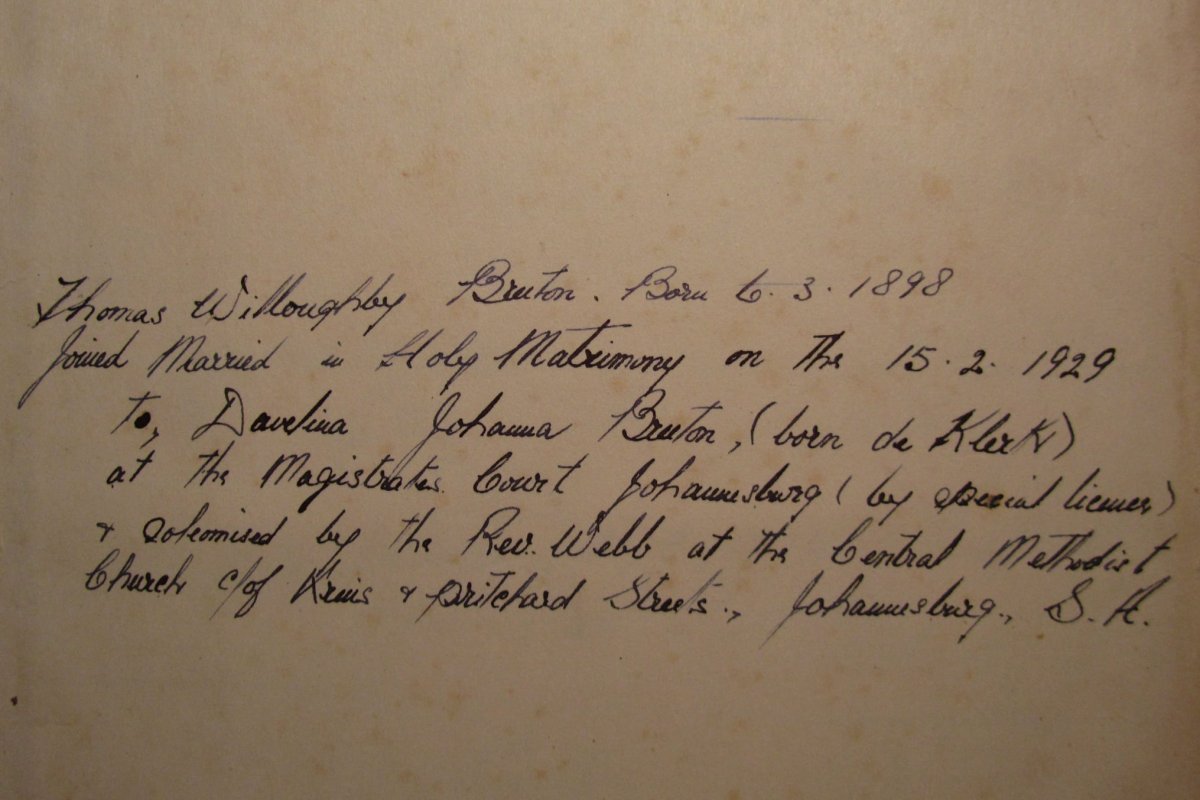 Thomas Willoughby Bruton. Born 6. 3. 1898
Joined Married in Holy Matrimony on the 15. 2. 1929
to, Davelina Johanna Bruton, (born de Klerk)
at the Magistrates Court Johannesburg (by special licence)
& solemised by the Rev. Webb at the Central Methodist
Church c/of Kruis & Pritchard Streets., Johannesburg., S. A.